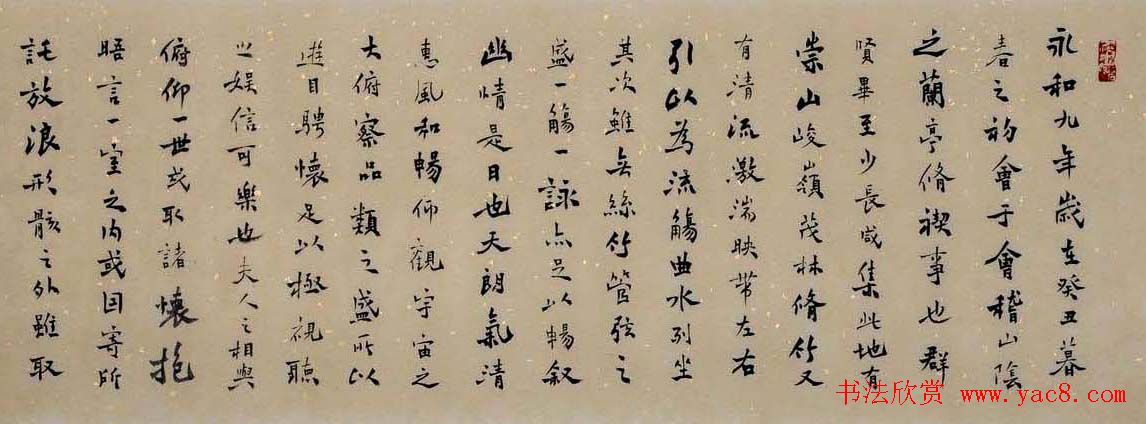 永和九年歲在癸丑暮
春之初會于會稽山陰
之蘭亭脩禊事也群
賢畢至少長咸集此地有
崇山峻嶺茂林脩竹又
有清流激湍映帶左右
引以為流觴曲水列坐
其次雖無絲竹管弦之
盛一觴一詠亦足以暢叙
幽情是日也天朗氣清
惠風和暢仰觀宇宙之
大俯察品類之盛所以
遊目騁懷足以極視聽
之娛信可樂也夫人之相與
俯仰一世或取諸懷抱
晤言一室之內或因寄所
託放浪形骸之外雖取
书法欣赏 www.yac8.com